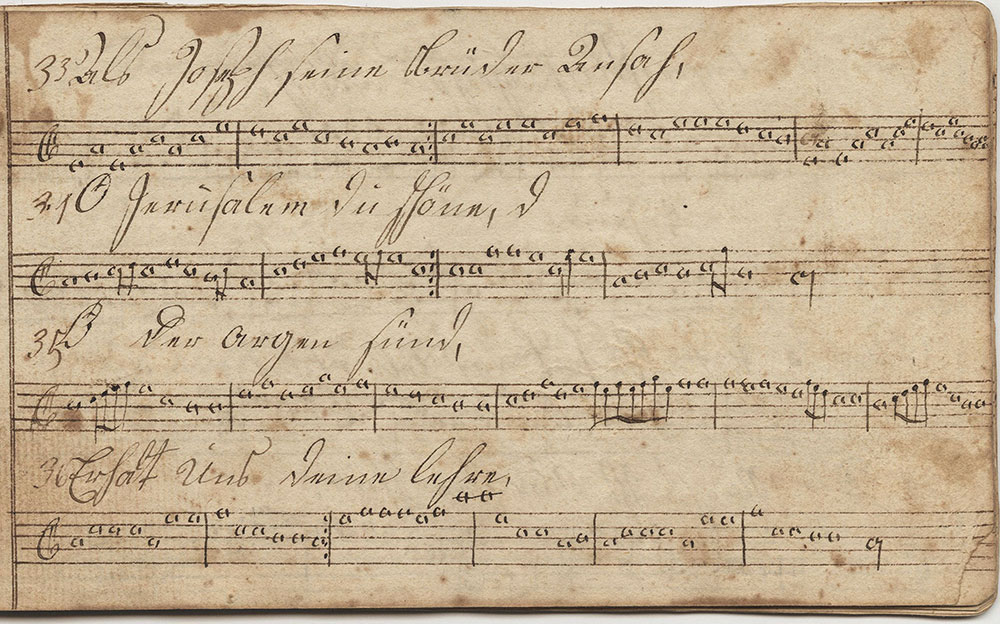 33 Als Joseph seine Brüder Ansah,
34 O Jerusalem du schöne, d
35 O der argen sünd,
36 Erhalt Uns deine lehre,